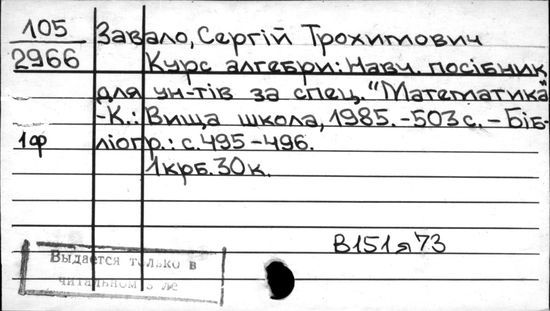 105
2966
Завало, Сергій Трохимович
Курс алгебри: Навч. посібник
для ун-тів за спец. "Математика"
-К.: Вища школа, 1985. -503 с. - Біб-
1ф
ліогр.: с. 495-496.
1крб. 30к.
В151я73
Выдается только в
читальном з ле